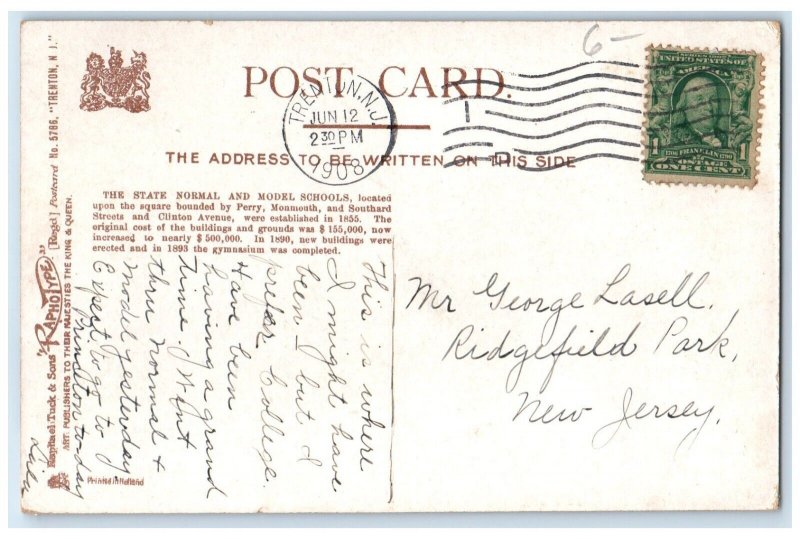 6-
POST CARD.
TRENTON, N.J.
JUN 12
2 30 PM
1908
1
SERIES 1902
UNITED STATES OF
AMERICA
1706 FRANKLIN 1790
1 POSTAGE 1
ONE CENT
THE ADDRESS TO BE WRITTEN ON THIS SIDE
THE STATE NORMAL AND MODEL SCHOOLS, located
upon the square bounded by Perry, Monmouth, and Southard
Streets and Clinton Avenue, were established in 1855. The
original cost of the buildings and grounds was $155,000, now
increased to nearly $500,000. In 1890, new buildings were
erected and in 1893 the gymnasium was completed.
Raphael Tuck & Sons' "RAPHOTYPE" [Regd.] Postcard No. 5786, "TRENTON, N J."
ART PUBLISHERS TO THEIR MAJESTIES THE KING & QUEEN.
Printed in Holland
This is where
I might have
been - but I
prefer College.
Have been
having a grand
time. Went
thru Normal &
Model yesterday
Expect to go to
Princeton today
Mr George Lasell.
Ridgefield Park,
New Jersey.